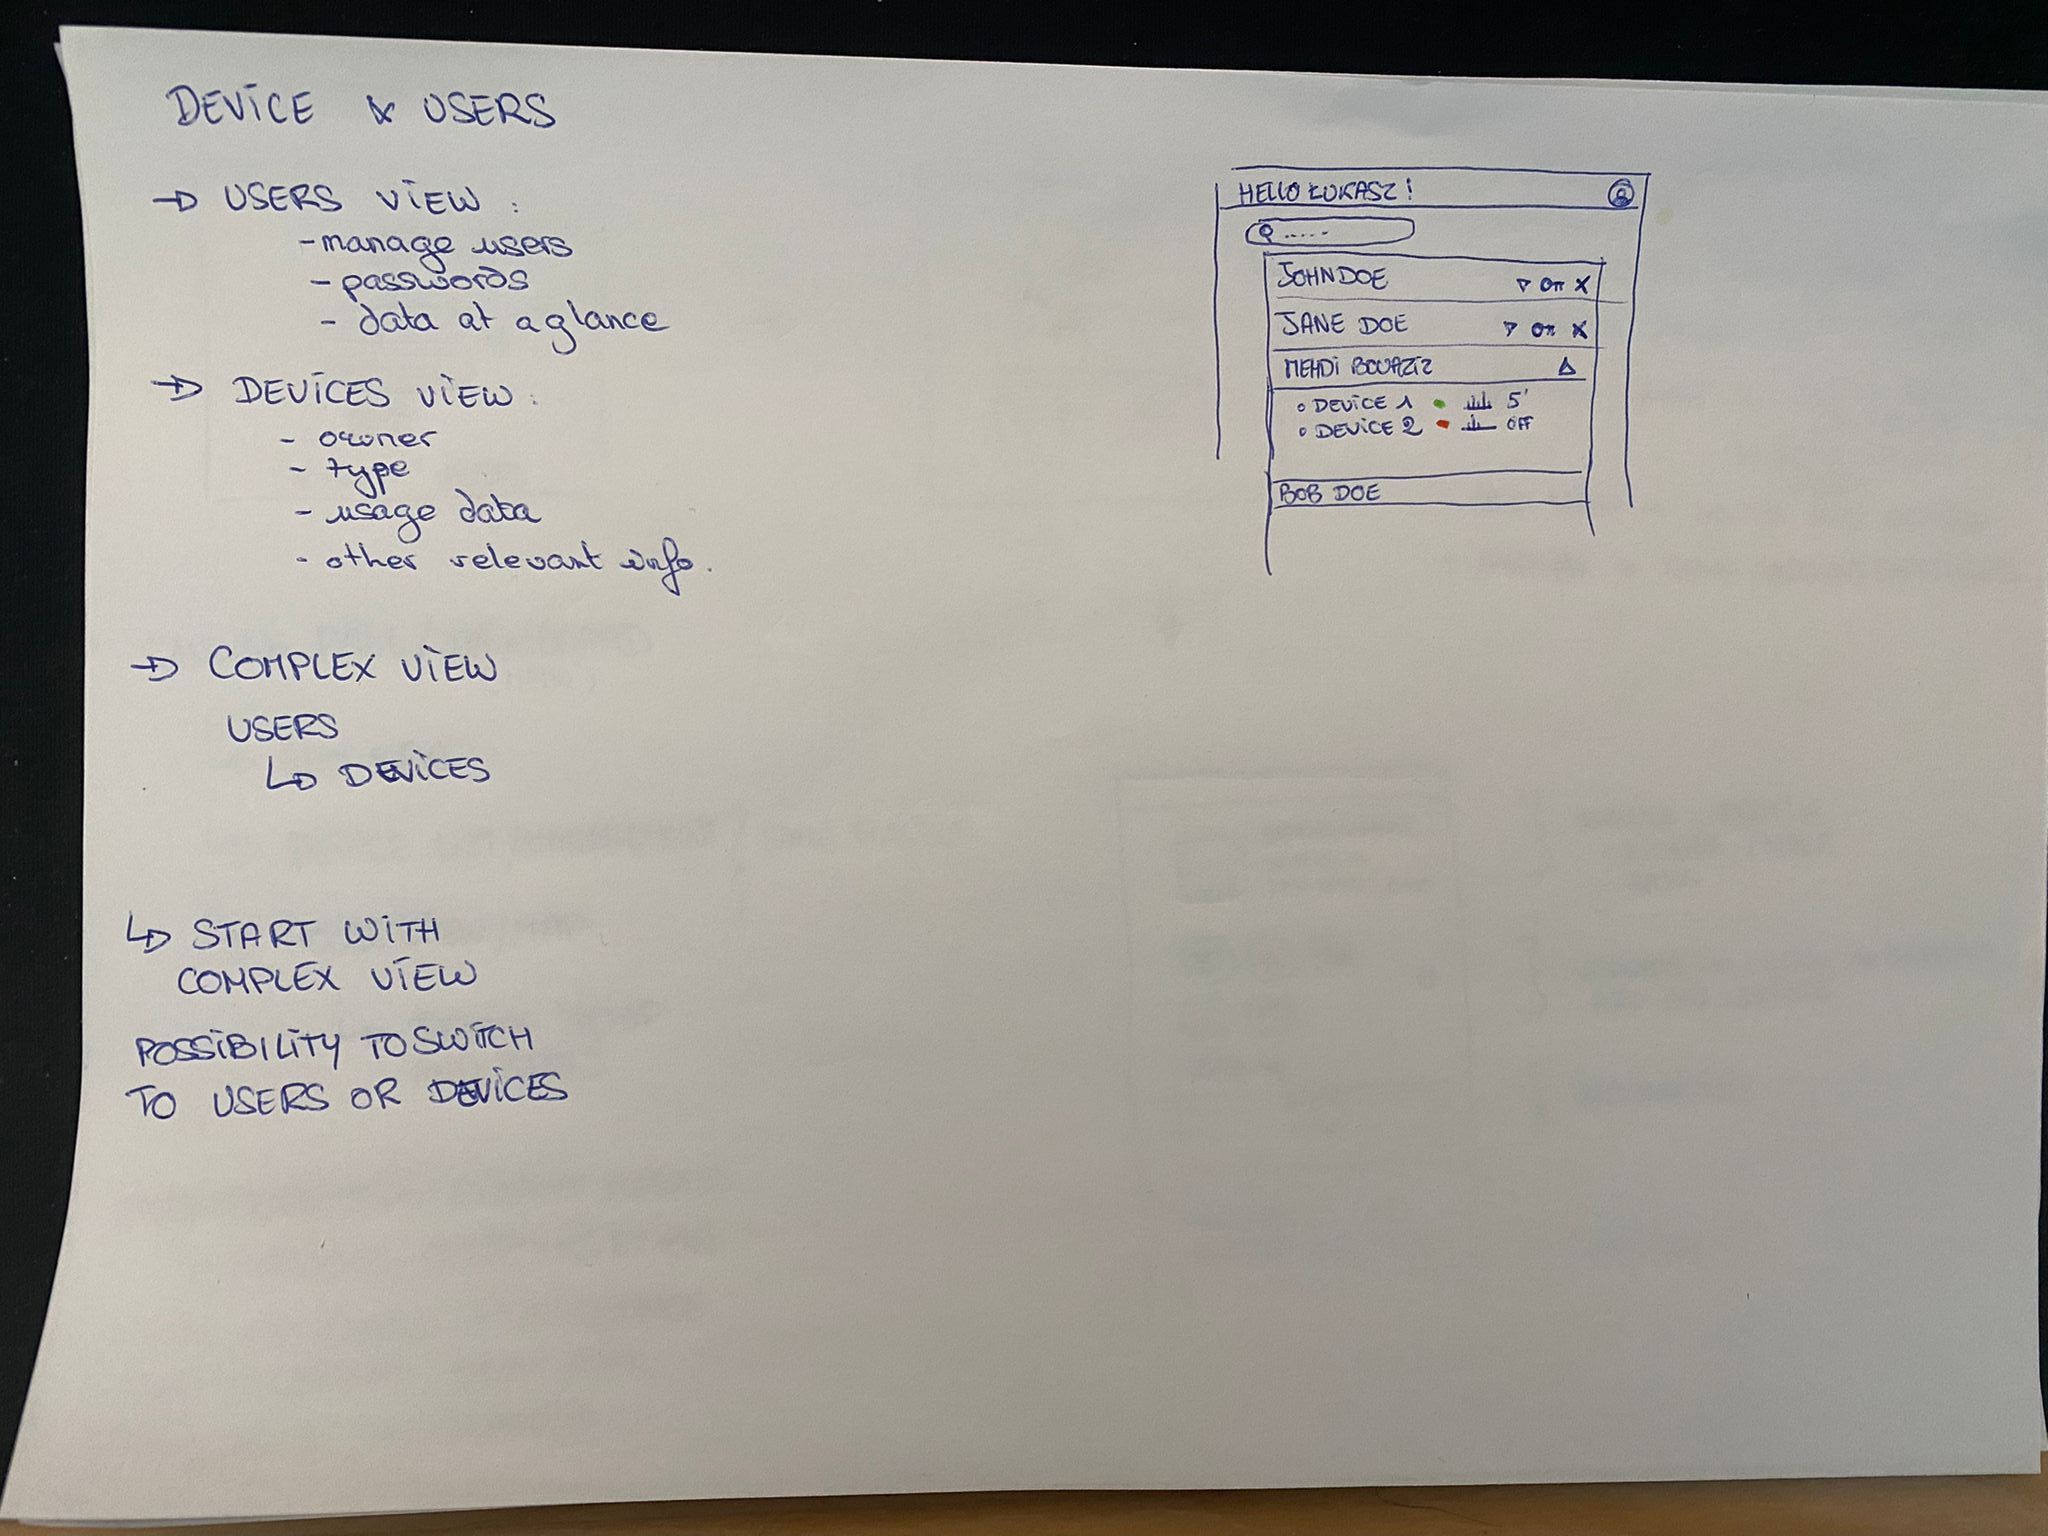 DEVICE & USERS
→ USERS VIEW :
- manage users
- passwords
- data at a glance
→ DEVICES VIEW :
- owner
- type
- usage data
- other relevant info.
→ COMPLEX VIEW
USERS
↳ DEVICES
↳ START WITH
COMPLEX VIEW
POSSIBILITY TO SWITCH
TO USERS OR DEVICES
HELLO ŁUKASZ !
.....
JOHN DOE ▽ On X
JANE DOE ▽ On X
MEHDI BOUAZIZ △
DEVICE 1 5'
DEVICE 2 OFF
BOB DOE